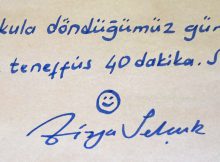 kula döndüğümüz gün
teneffüs 40 dakika. S
Ziya Selçuk